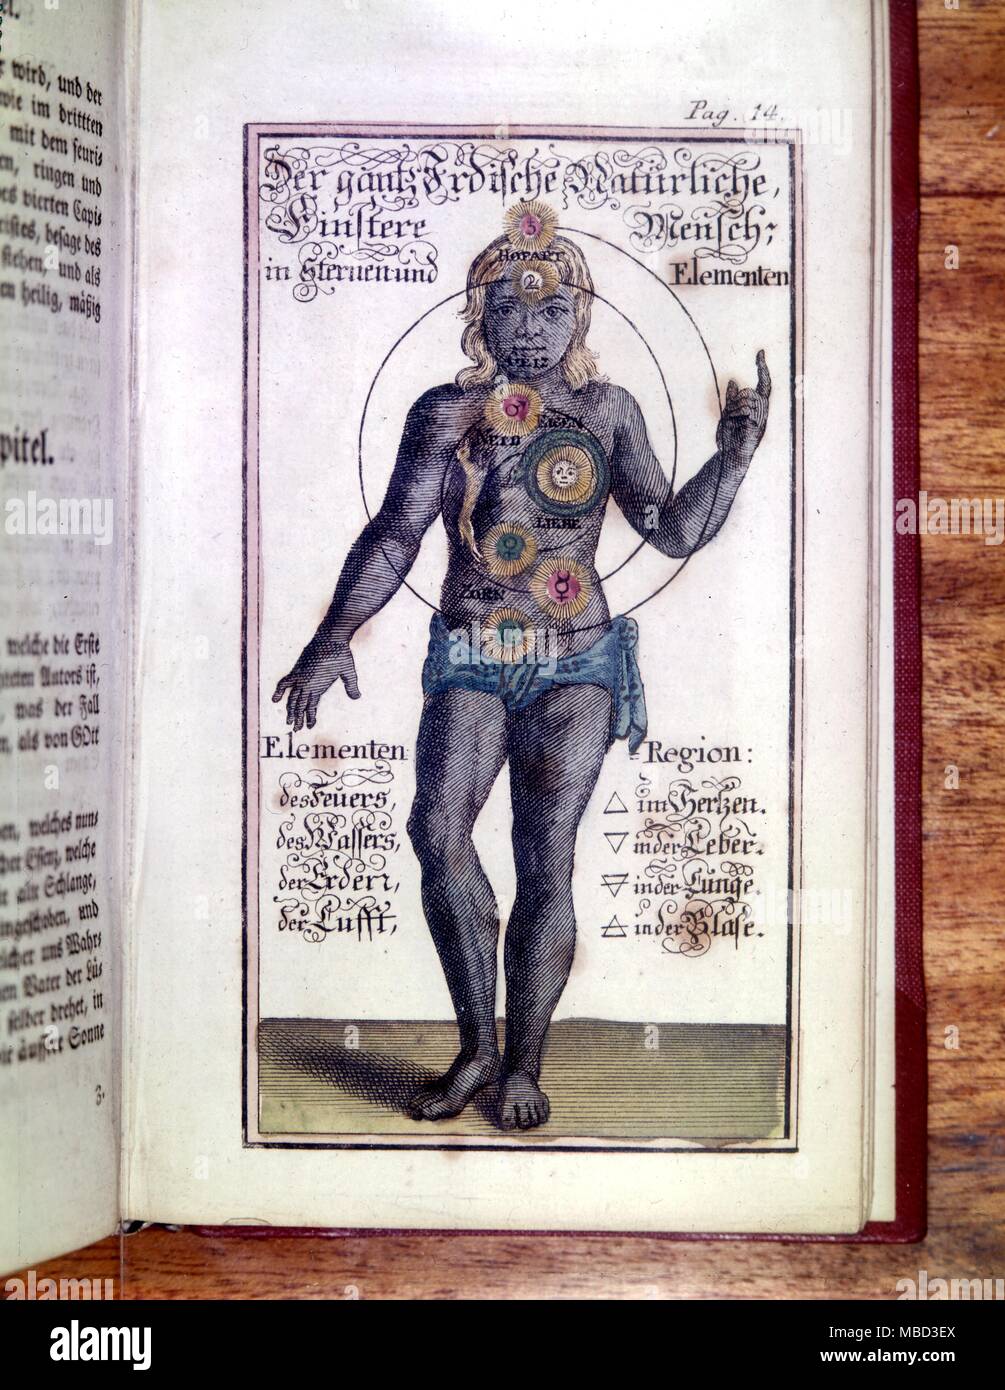 wird, und der
wie im drittten
mit dem feuris
en, ringen und
des vierten Capi-
ristes, besage des
stehen, und als
en heilig, mäßig
pitel.
welche die Erste
teten Autors ist,
was der Fall
n, als von GOtt
en, welches nun-
cher Essenz, welche
alte Schlange,
ingeschoben, und
licher uns Wahr-
nen Vater der Lü-
selber drehet, in
ie äussere Sonne
3.
Pag. 14.
Der gantz Irdische Natürliche,
Finstere Mensch;
in Sternen und Elementen
♄
HOFART
♃
GEITZ
♂
NEID
EIGEN
LIEBE
♀
☿
ZORN
Elementen Region:
des Feuers, △ im Hertzen.
des Wassers, ▽ in der Leber.
der Erden, in der Lunge.
der Lufft, in der Blase.
alamy
Image ID: MBD3EX
www.alamy.com